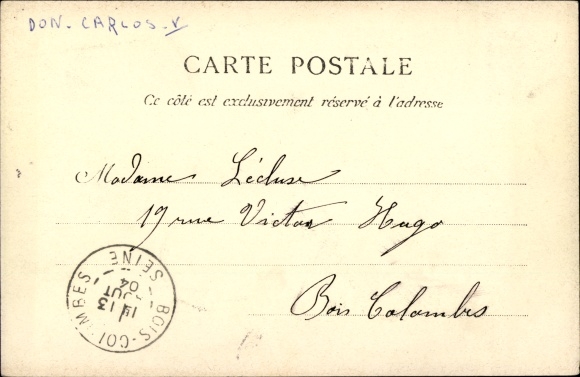 DON. CARLOS. V
CARTE POSTALE
Ce côté est exclusivement réservé à l'adresse
Madame Lécluse
19 rue Victor Hugo
Bois Colombes
BOIS-COLOMBES
SEINE
13
AOUT
04